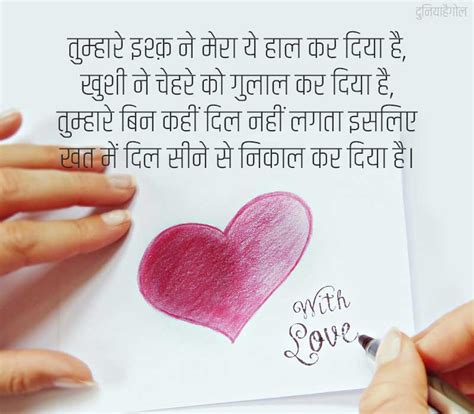 दुनियाहैगोल
तुम्हारे इश्क़ ने मेरा ये हाल कर दिया है,
खुशी ने चेहरे को गुलाल कर दिया है,
तुम्हारे बिन कहीं दिल नहीं लगता इसलिए
खत में दिल सीने से निकाल कर दिया है।
With
Love